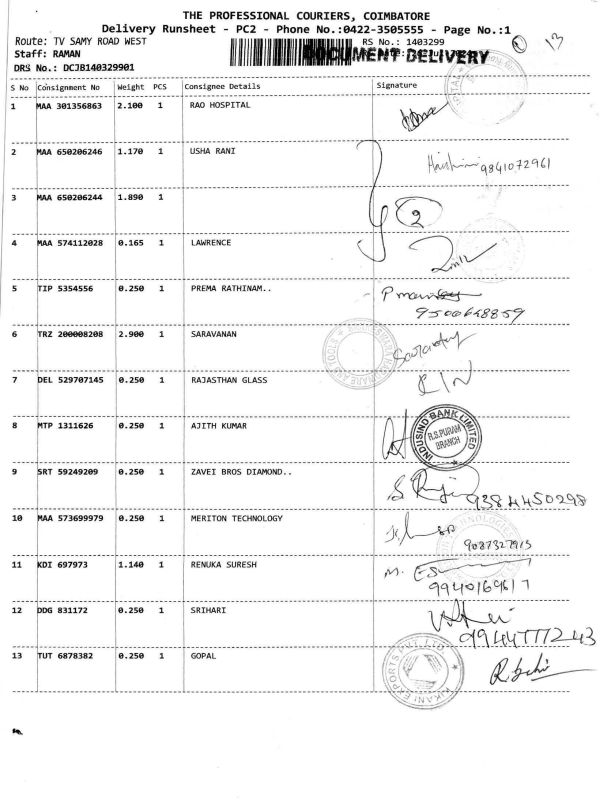 THE PROFESSIONAL COURIERS, COIMBATORE
Delivery Runsheet - PC2 - Phone No.:0422-3505555 - Page No.:1
Route: TV SAMY ROAD WEST RS No.: 1403299 13
Staff: RAMAN DOCUMENT DELIVERY
DRS No.: DCJB140329901
S No Consignment No Weight PCS Consignee Details Signature
1 MAA 301356863 2.100 1 RAO HOSPITAL
2 MAA 650206246 1.170 1 USHA RANI 9841072961
3 MAA 650206244 1.890 1 2
4 MAA 574112028 0.165 1 LAWRENCE
5 TIP 5354556 0.250 1 PREMA RATHINAM..
9500648859
6 TRZ 200008208 2.900 1 SARAVANAN
7 DEL 529707145 0.250 1 RAJASTHAN GLASS
8 MTP 1311626 0.250 1 AJITH KUMAR
INDUSIND BANK LIMITED
R.S.PURAM
BRANCH
9 SRT 59249209 0.250 1 ZAVEI BROS DIAMOND..
9384450298
10 MAA 573699979 0.250 1 MERITON TECHNOLOGY
9087327913
11 KDI 697973 1.140 1 RENUKA SURESH
9940169617
12 DDG 831172 0.250 1 SRIHARI
9944777243
13 TUT 6878382 0.250 1 GOPAL
KIKANI EXPORTS PVT. LTD.